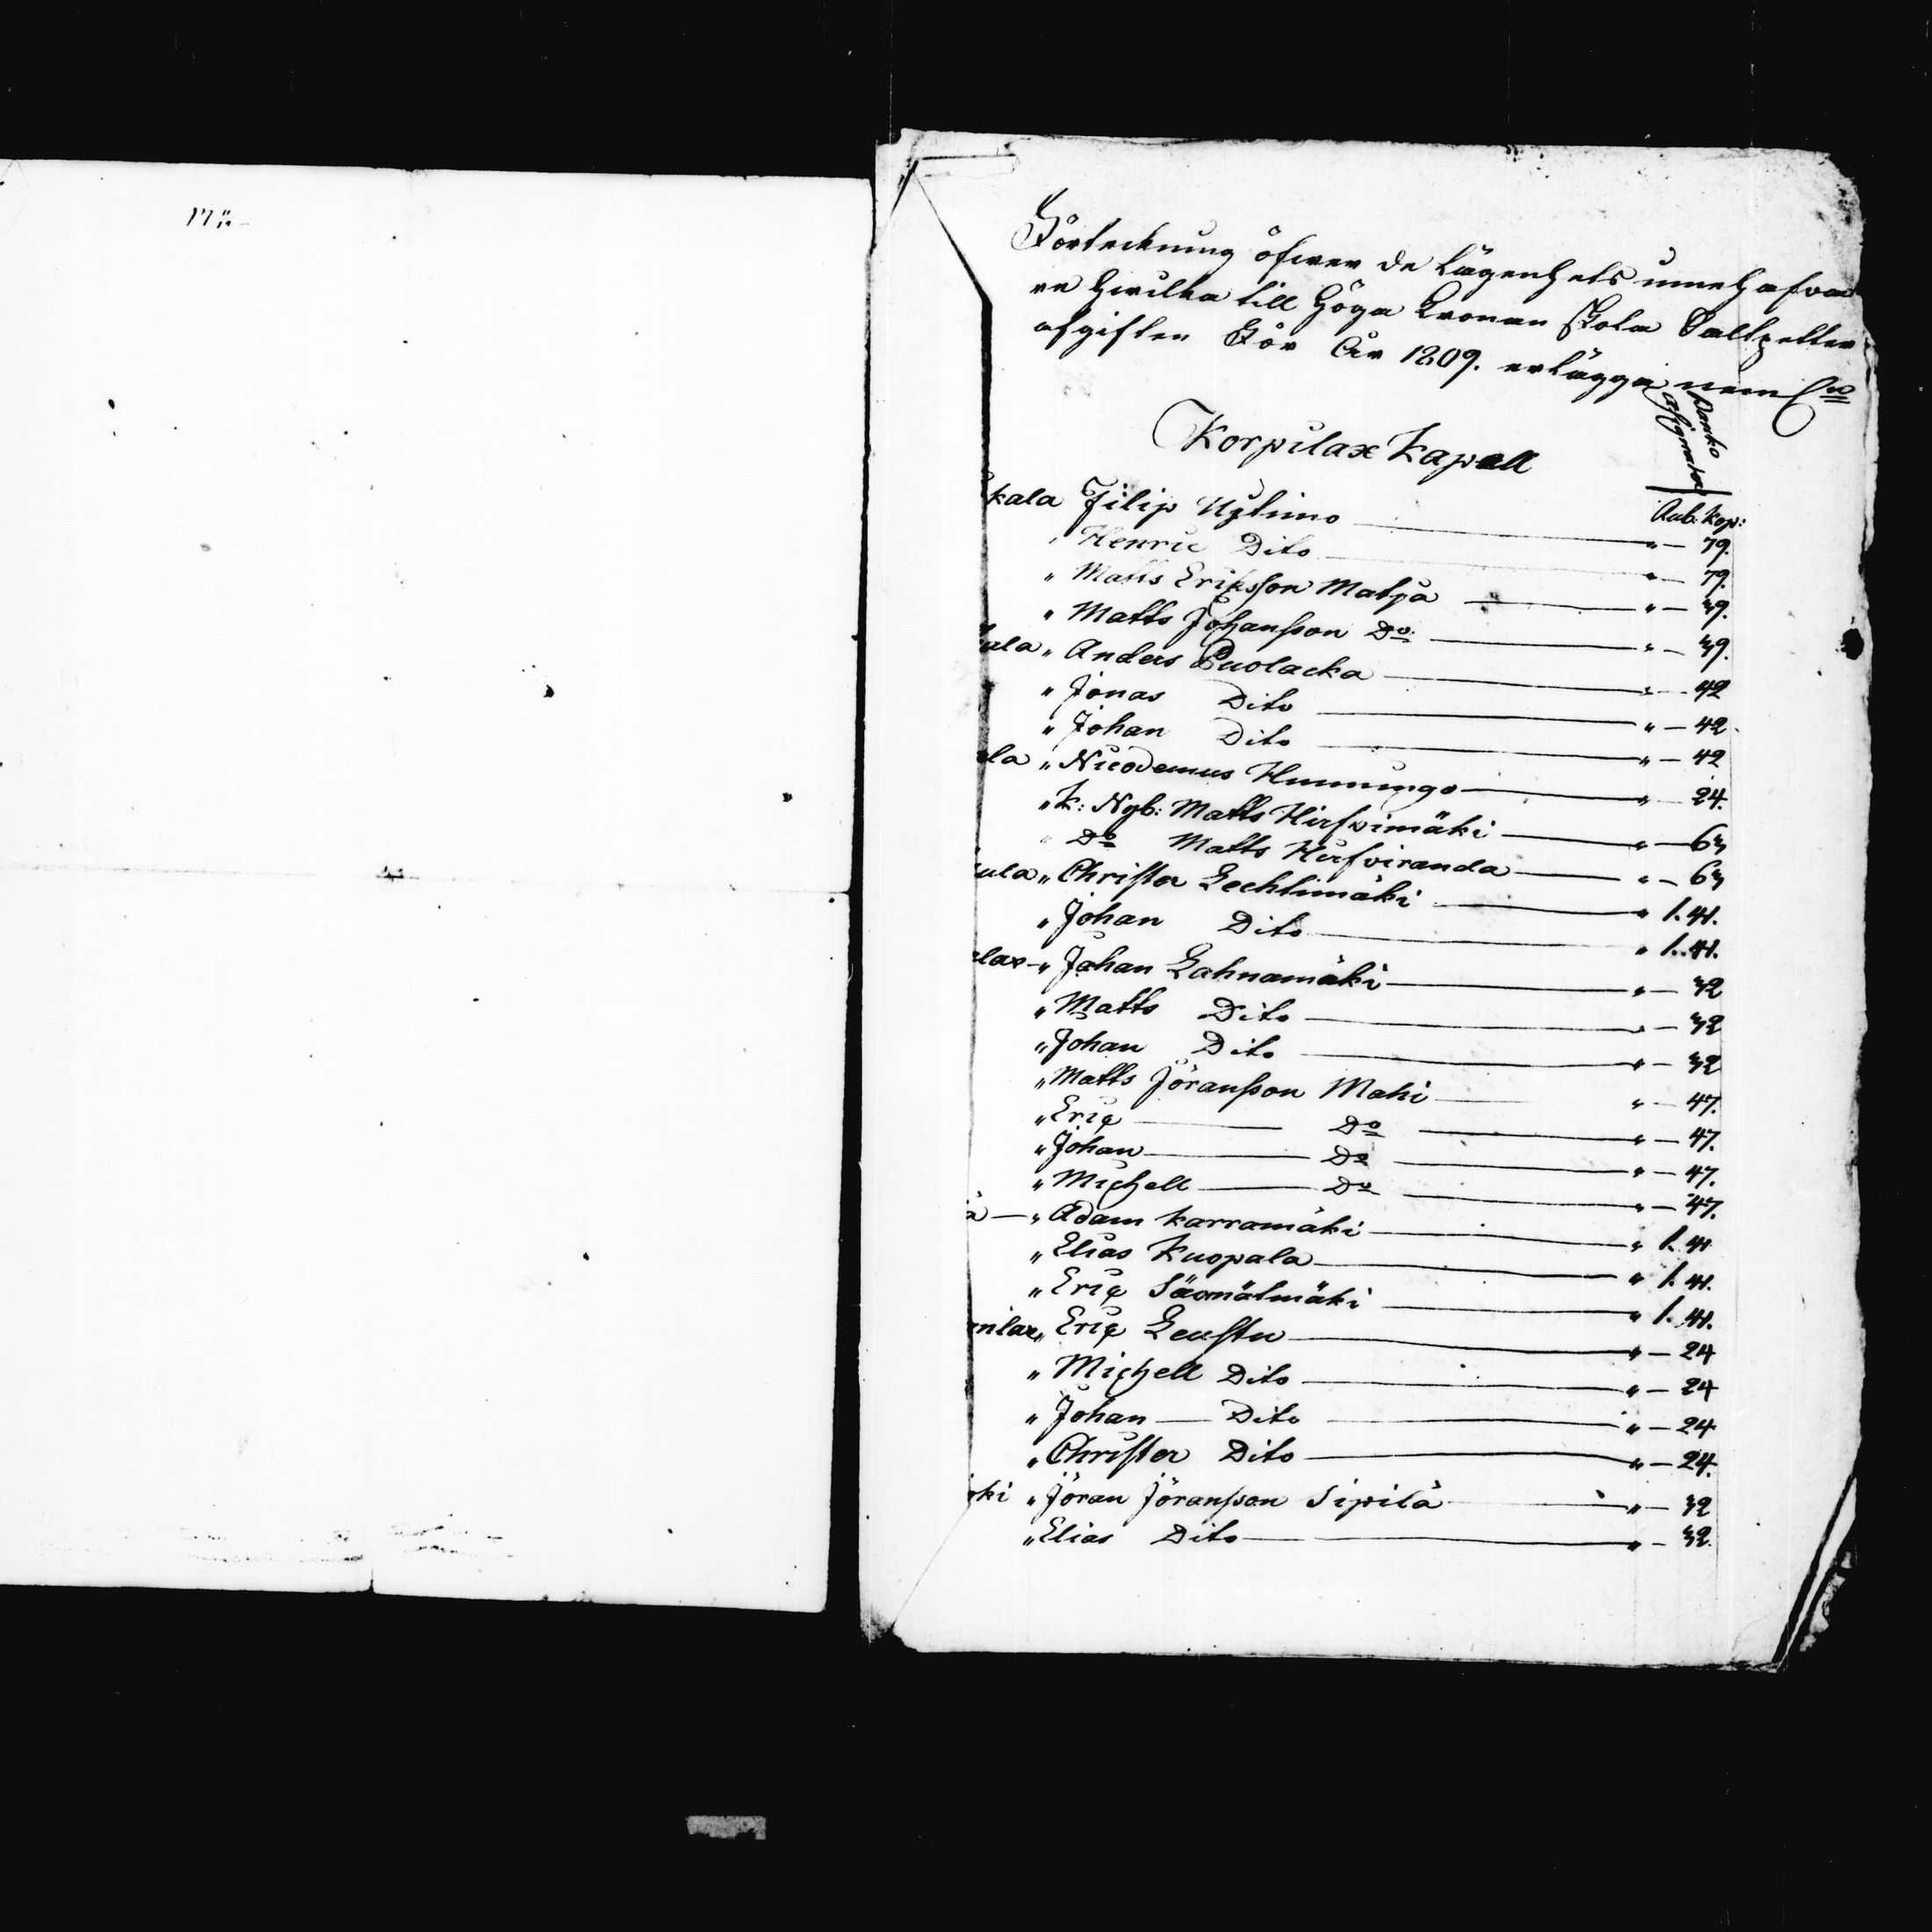 17
Förteckning öfwer de Lägenhets innehafva
re hvilka till Höga Kronan skola Saltpetter
afgiften För År 1809. erlägga nem:
Banko
Korpilax Kapell
Rub: Kop:
kala Filip Uztimo " — 79.
" Henric Dito " — 79.
" Matts Eriksson Matja " — 39.
" Matts Johansson Do " — 39.
ula " Anders Puolacka " — 42
" Jonas Dito " — 42.
" Johan Dito " — 42
ela " Nicodemus Hunningo " — 24.
" K: Nyb: Matts Hirfvimäki " — 63
" Do Matts Hirfviranda " — 63
ula " Christer Lechtimäki " 1. 41.
" Johan Dito " 1. 41.
lax " Johan Lahnamäki " — 32
" Matts Dito " — 32
" Johan Dito " — 32
" Matts Jöransson Mahi " — 47.
" Eric Do " — 47.
" Johan Do " — 47.
" Michell Do " — 47.
ä — " Adam Karramäki " 1. 41
" Elias Kuopala " 1. 41.
" Eric " 1. 41.
milax " Eric Leustu " — 24
" Michell Dito " — 24
" Johan — Dito " — 24
" Christer Dito " — 24.
oki " Jöran Jöransson Sipilä " — 32
" Elias Dito " — 32.